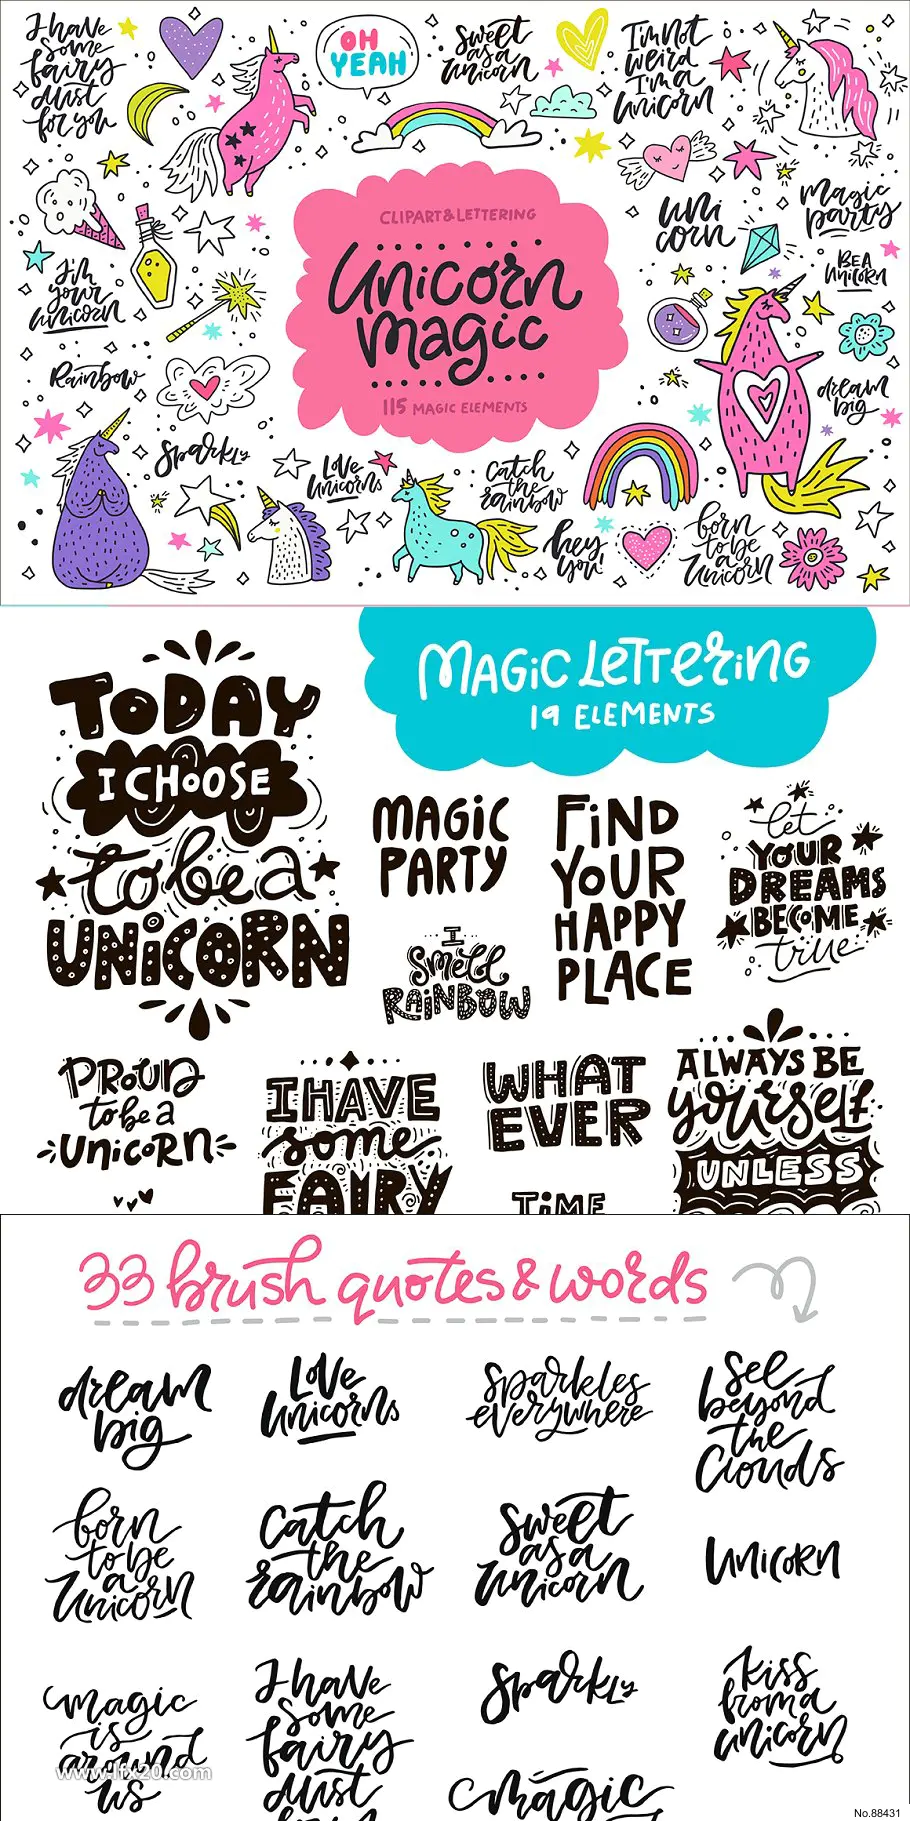 I have
some
fairy
dust
for you
OH
YEAH
Sweet
as a
unicorn
I'm not
weird
I'm a
unicorn
CLIPART & LETTERING
Unicorn
magic
115 MAGIC ELEMENTS
uni
corn
Magic
party
BE A
UNICORN
I'm
your
unicorn
Rainbow
Sparkly
dream
big
Love
unicorns
catch
the
rainbow
hey
you!
born
to be
a
Unicorn
MAGIC LETTERING
19 ELEMENTS
TODAY
I CHOOSE
to be a
UNICORN
MAGIC
PARTY
FIND
YOUR
HAPPY
PLACE
let
YOUR
DREAMS
BECOME
true
I
Smell
RAINBOW
PROUD
to be a
UNICORN
I HAVE
some
FAIRY
WHAT
EVER
TIME
ALWAYS BE
yourself
UNLESS
33 brush quotes & words
dream
big
Love
Unicorns
Sparkles
everywhere
See
beyond
the
Clouds
born
to be
a
Unicorn
Catch
the
rainbow
Sweet
as a
unicorn
UNICORN
magic
is
around
us
I have
some
fairy
dust
Sparkly
kiss
from a
unicorn
magic
www.lfx20.com
No.88431